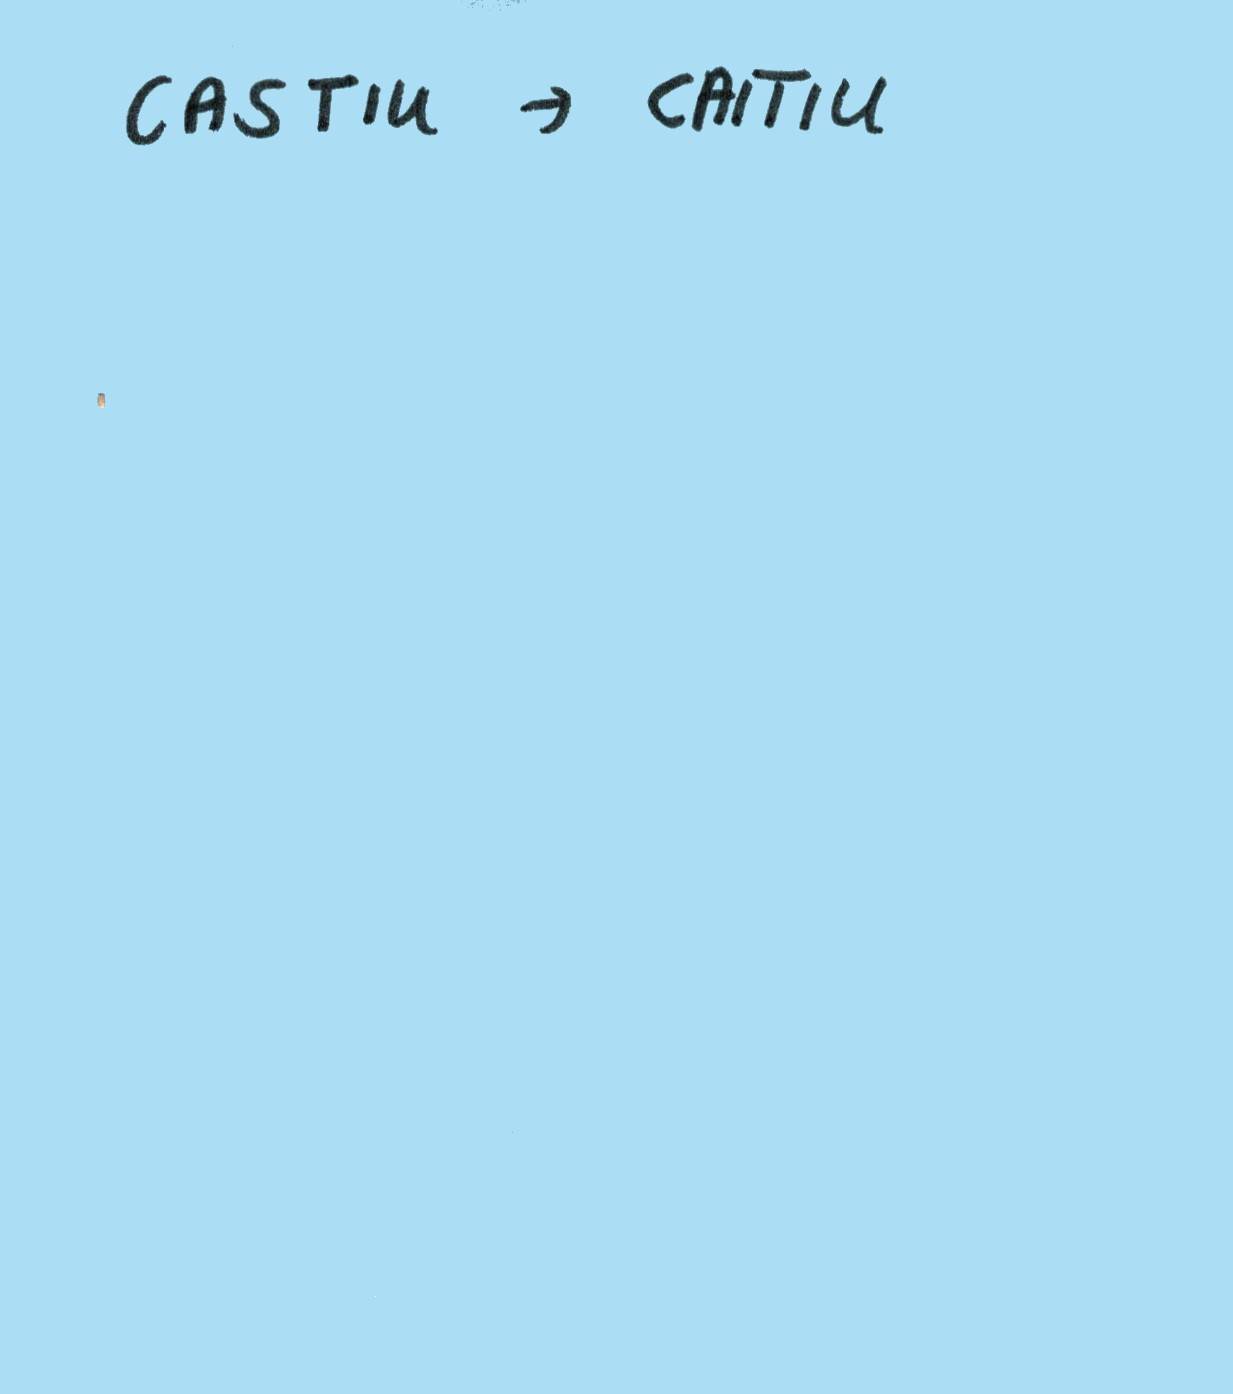 CASTIU → CAITIU